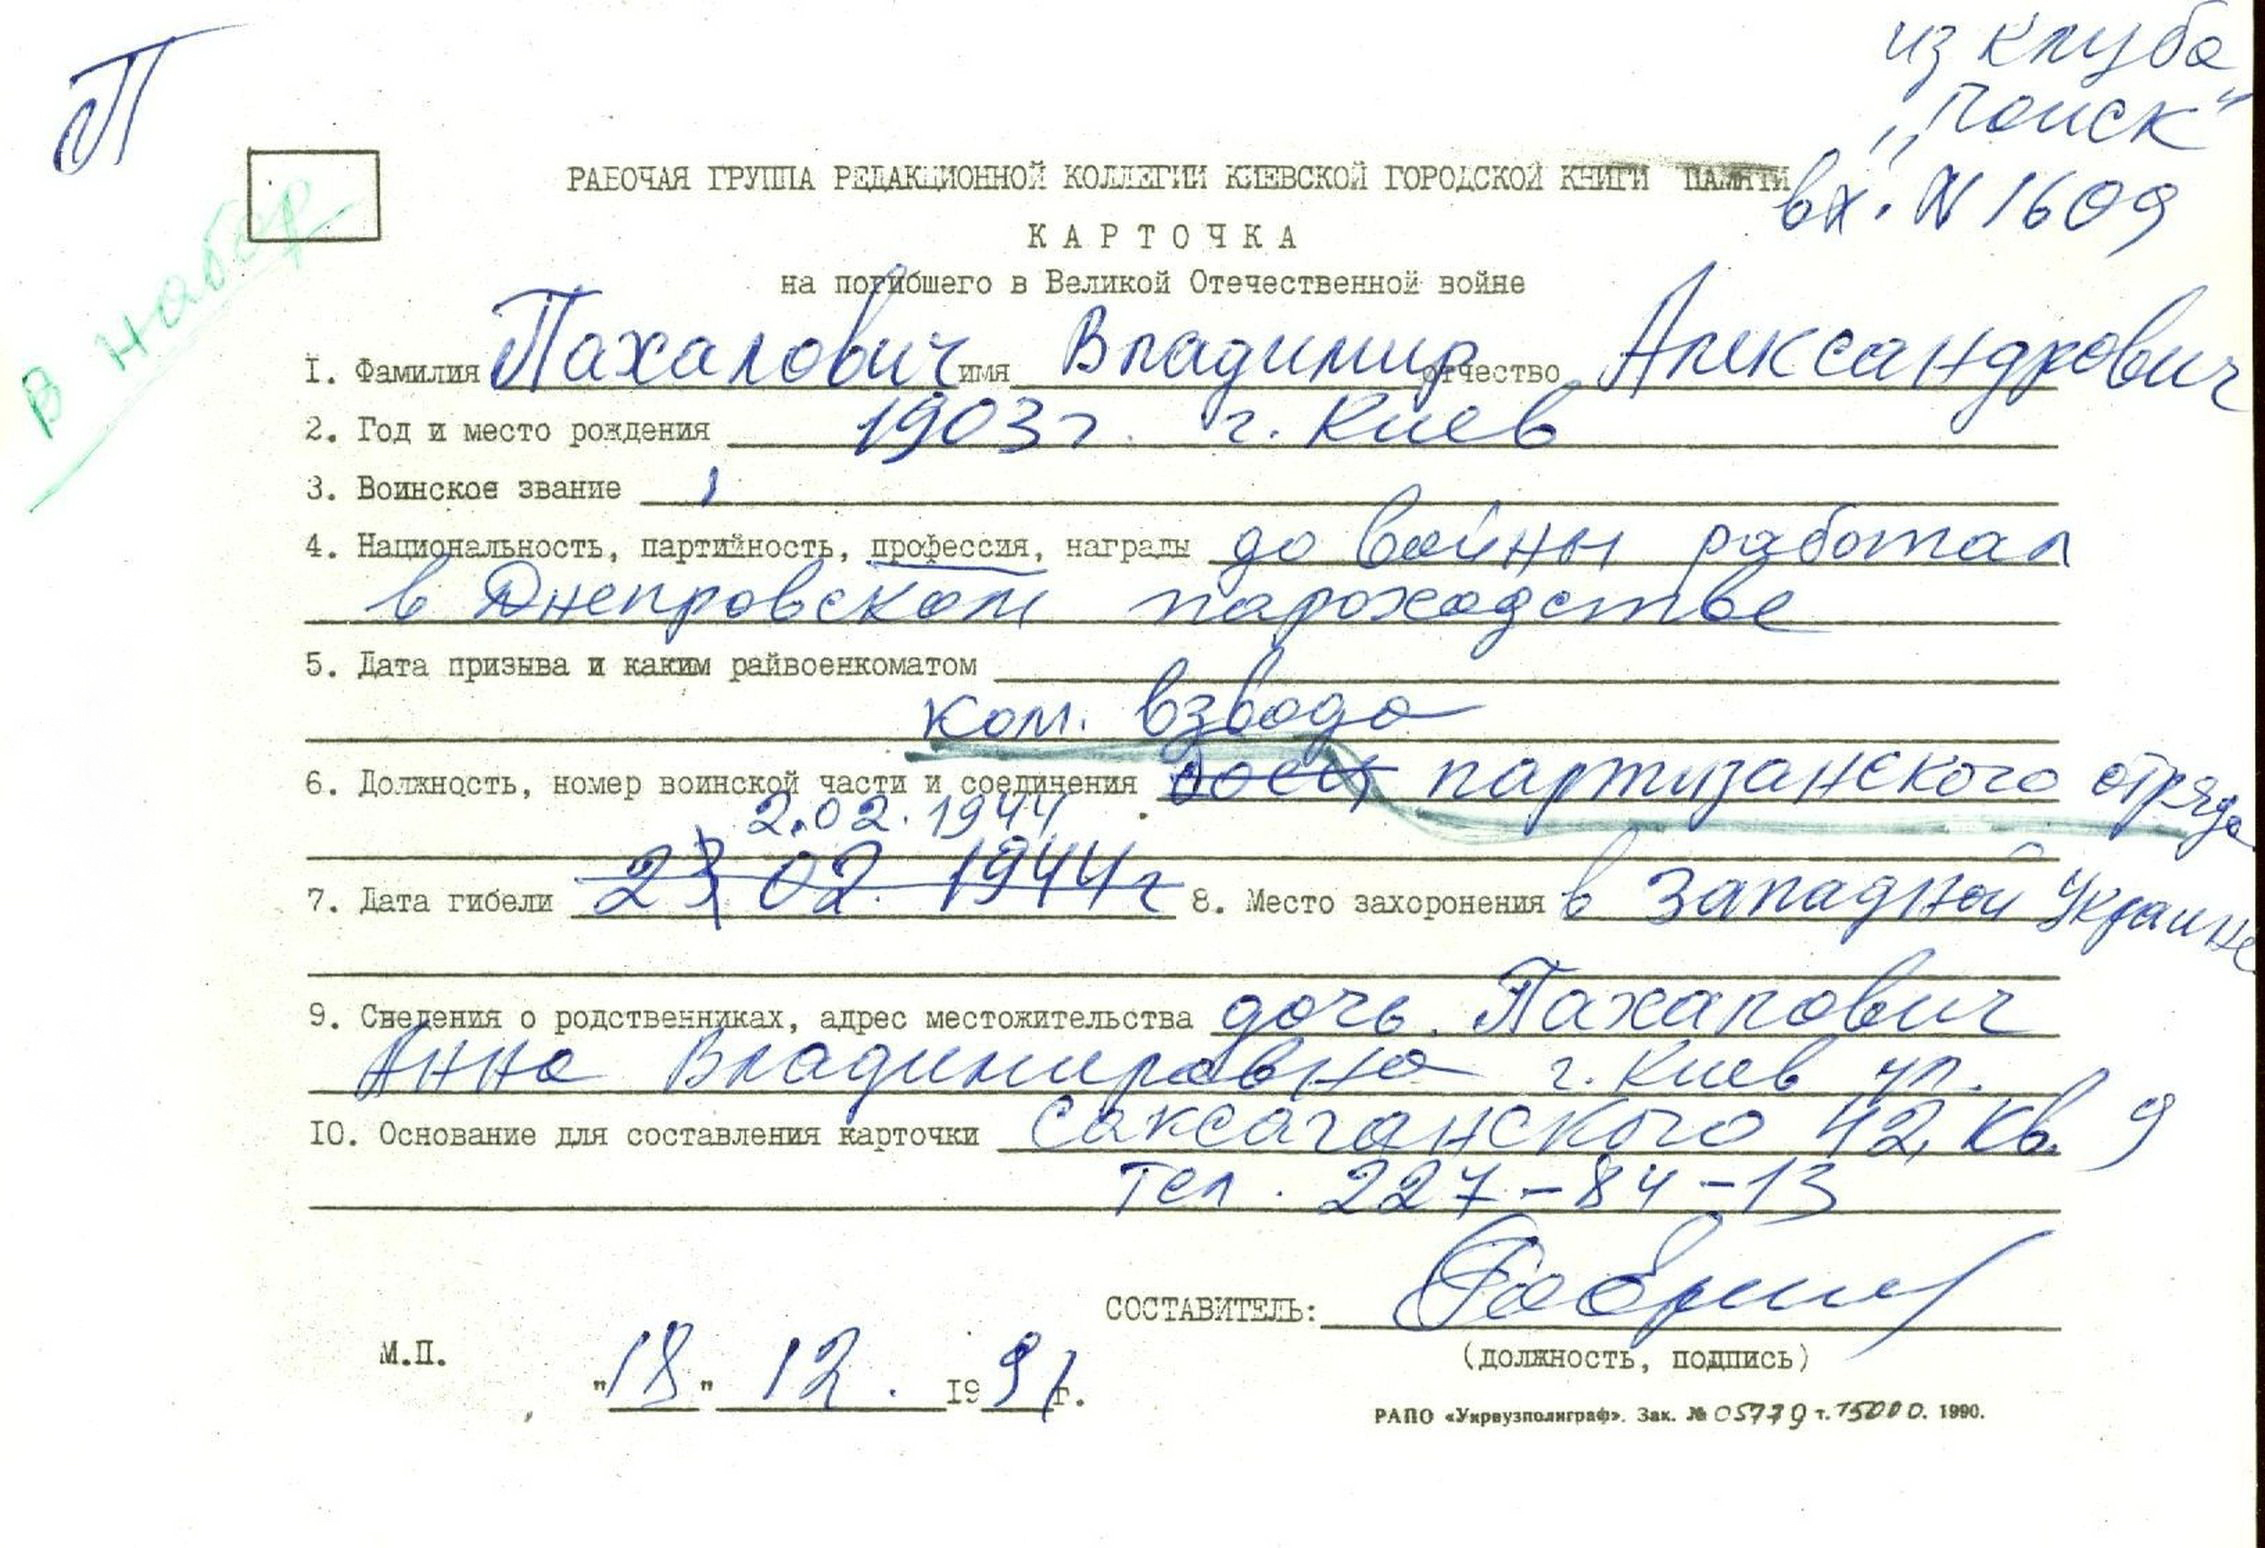 П
из клуба
„Поиск"
вх. N 1609
В набор
РАБОЧАЯ ГРУППА РЕДАКЦИОННОЙ КОЛЛЕГИИ КИЕВСКОЙ ГОРОДСКОЙ КНИГИ ПАМЯТИ
КАРТОЧКА
на погибшего в Великой Отечественной войне
1. Фамилия Пахалович имя Владимир отчество Александрович
2. Год и место рождения 1903 г. г. Киев
3. Воинское звание
4. Национальность, партийность, профессия, награды до войны работал
в Днепровском пароходстве
5. Дата призыва и каким райвоенкоматом
ком. взвода
6. Должность, номер воинской части и соединения боец партизанского отряда
2.02.1944
7. Дата гибели 23 02. 1944 г 8. Место захоронения в Западной Украине
9. Сведения о родственниках, адрес местожительства дочь. Пахалович
Анна Владимировна г. Киев ул.
10. Основание для составления карточки Саксаганского 42, кв. 9
тел. 227-84-13
СОСТАВИТЕЛЬ:
(должность, подпись)
М.П.
"18" 12. 1991 г.
РАПО «Укрвузполиграф». Зак. № 05779 т. 15000. 1990.